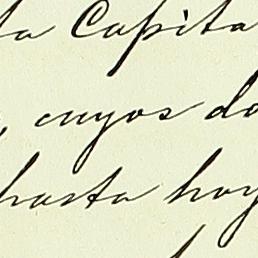 ta Capita
, cuyos do
hasta hoy